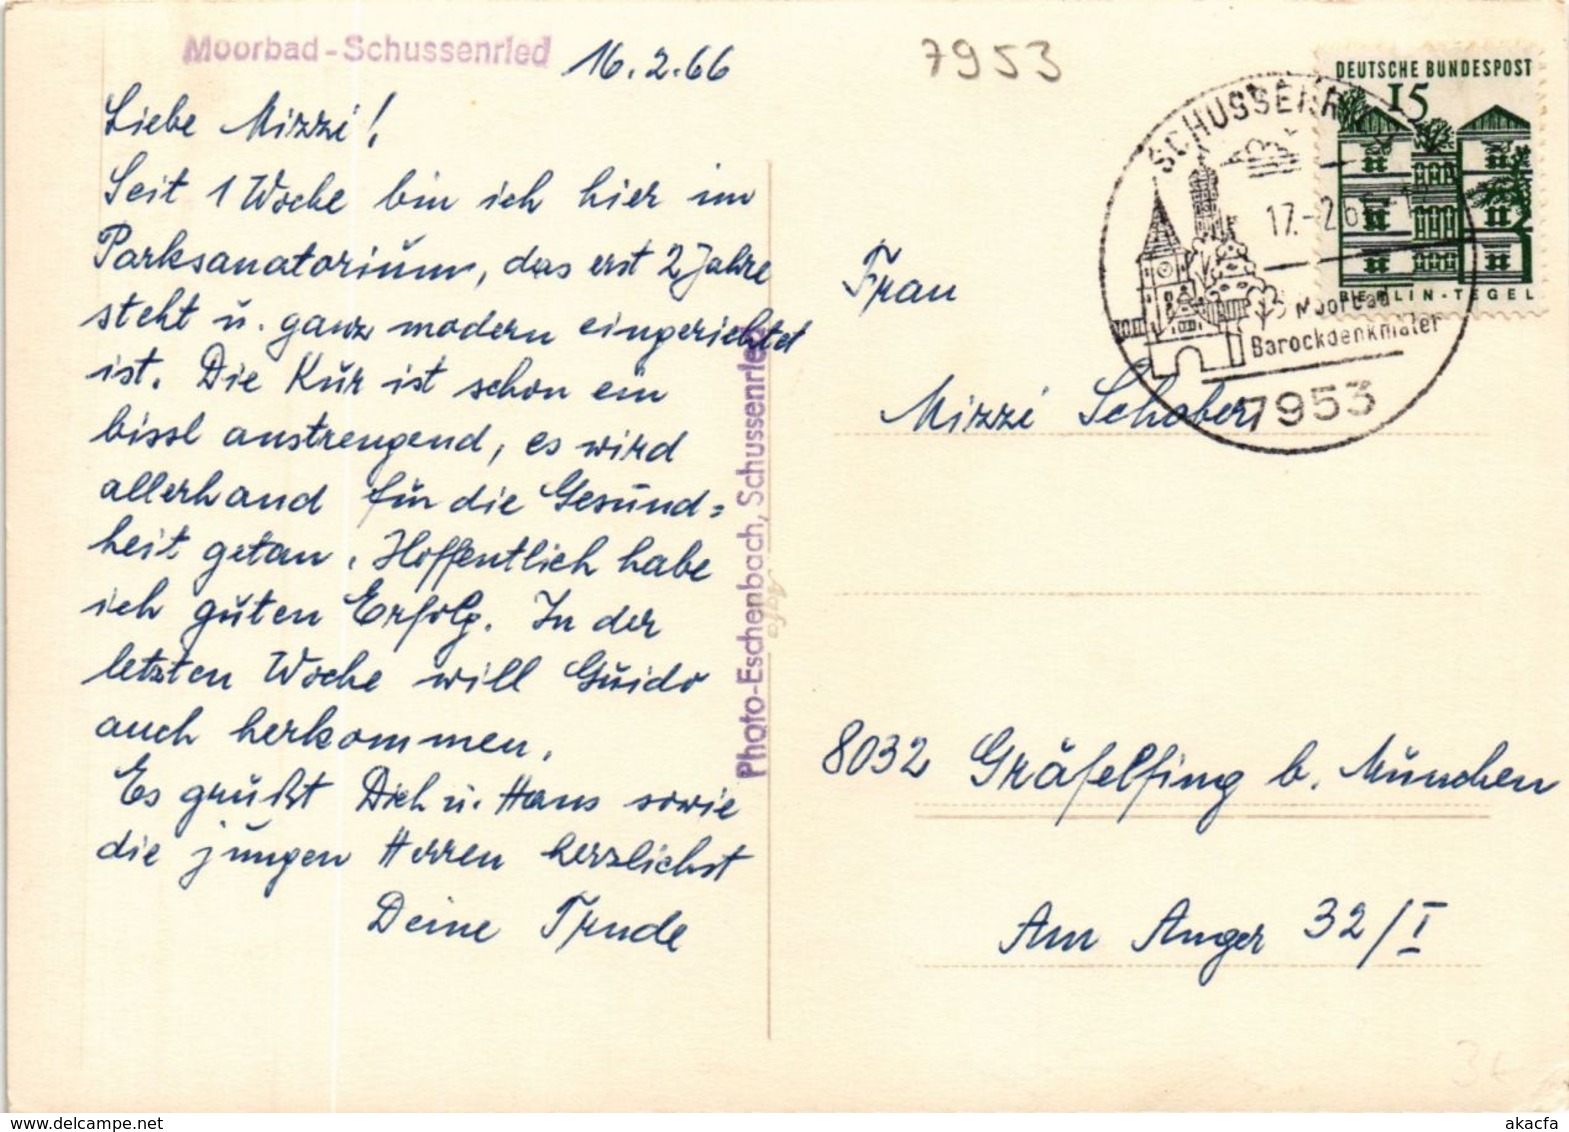 Moorbad-Schussenried
16.2.66
Liebe Mizzi!
Seit 1 Woche bin ich hier im
Parksanatorium, das erst 2 Jahre
steht u. ganz modern eingerichtet
ist. Die Kur ist schon ein
bissl anstrengend, es wird
allerhand für die Gesund=
heit getan. Hoffentlich habe
ich guten Erfolg. In der
letzten Woche will Guido
auch herkommen.
Es grüßt Dich u. Hans sowie
die jungen Herren herzlichst
Deine Trude
Photo-Eschenbach, Schussenried
Agfa
7953
DEUTSCHE BUNDESPOST
15
BERLIN-TEGEL
SCHUSSENR
17.-2.6
Moorbad
Barockdenkmäler
7953
Frau
Mizzi Schober
8032 Gräfelfing b. München
Am Anger 32/I
akacfa
www.delcampe.net